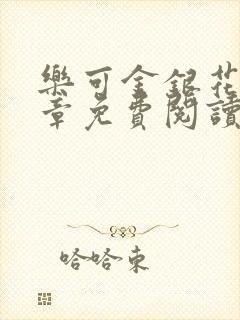 樂可金銀花
章免費閱讀
哈哈東